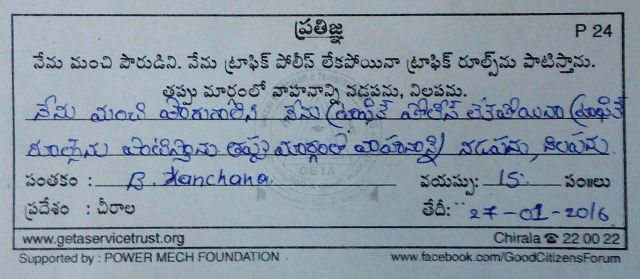 ప్రతిజ్ఞ P 24
నేను మంచి పౌరుడిని. నేను ట్రాఫిక్ పోలీస్ లేకపోయినా ట్రాఫిక్ రూల్స్‌ను పాటిస్తాను.
తప్పు మార్గంలో వాహనాన్ని నడపను, నిలపను.
నేను మంచి నేను ట్రాఫిక్ పోలీస్ లేకపోయినా ట్రాఫిక్
రూల్స్‌ను పాటిస్తాను తప్పు మార్గంలో వాహనాన్ని నడపను, నిలపను.
సంతకం : B. Kanchana వయస్సు: 15 సం॥లు
ప్రదేశం : చీరాల తేదీ: 27-01-2016
www.getaservicetrust.org Chirala ☎ 22 00 22
Supported by : POWER MECH FOUNDATION www.facebook.com/GoodCitizensForum